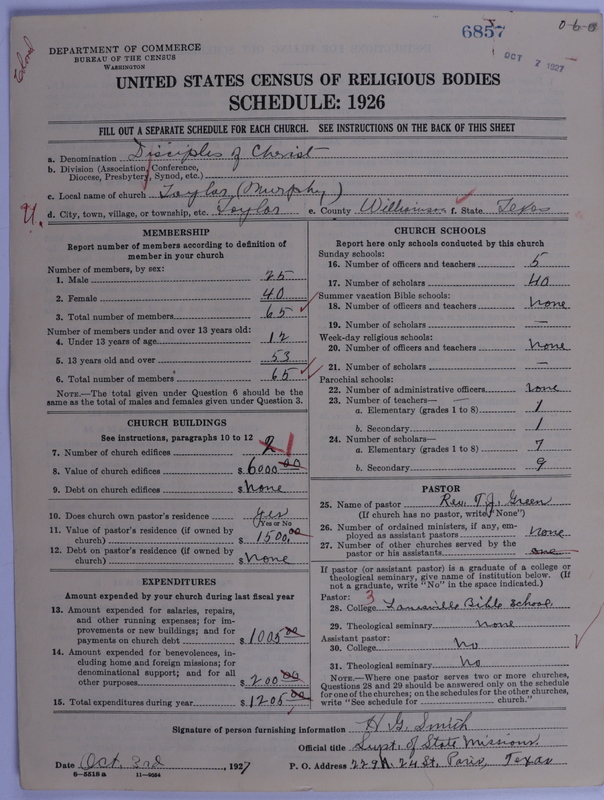 Colored
6857
OCT 7 1927
0-6-0
DEPARTMENT OF COMMERCE
BUREAU OF THE CENSUS
WASHINGTON
UNITED STATES CENSUS OF RELIGIOUS BODIES
SCHEDULE: 1926
FILL OUT A SEPARATE SCHEDULE FOR EACH CHURCH. SEE INSTRUCTIONS ON THE BACK OF THIS SHEET
a. Denomination Disciples of Christ
b. Division (Association, Conference,
Diocese, Presbytery, Synod, etc.)
c. Local name of church Taylor (Murphy)
d. City, town, village, or township, etc. Taylor e. County Williamson f. State Texas
MEMBERSHIP
Report number of members according to definition of
member in your church
Number of members, by sex:
1. Male 25
2. Female 40
3. Total number of members 65
Number of members under and over 13 years old:
4. Under 13 years of age 12
5. 13 years old and over 53
6. Total number of members 65
NOTE.—The total given under Question 6 should be
same as the total of males and females given under Question 3.
CHURCH BUILDINGS
See instructions, paragraphs 10 to 12
7. Number of church edifices 2 1
8. Value of church edifices $ 6000.00
9. Debt on church edifices $ None
10. Does church own pastor's residence yes
(Yes or No
11. Value of pastor's residence (if owned by
church) $ 1500.00
12. Debt on pastor's residence (if owned by
church) $ None
EXPENDITURES
Amount expended by your church during last fiscal year
13. Amount expended for salaries, repairs,
and other running expenses; for im-
provements or new buildings; and for
payments on church debt $ 1005.00
14. Amount expended for benevolences, in-
cluding home and foreign missions; for
denominational support; and for all
other purposes $ 200.00
15. Total expenditures during year $ 1205.00
CHURCH SCHOOLS
Report here only schools conducted by this church
Sunday schools:
16. Number of officers and teachers 5
17. Number of scholars 40
Summer vacation Bible schools:
18. Number of officers and teachers None
19. Number of scholars —
Week-day religious schools:
20. Number of officers and teachers None
21. Number of scholars —
Parochial schools:
22. Number of administrative officers None
23. Number of teachers— —
a. Elementary (grades 1 to 8) 1
b. Secondary 1
24. Number of scholars—
a. Elementary (grades 1 to 8) 7
b. Secondary 9
PASTOR
25. Name of pastor Rev. T.J. Green
(If church has no pastor, write "None")
26. Number of ordained ministers, if any, em-
ployed as assistant pastors None
27. Number of other churches served by the
pastor or his assistants one
If pastor (or assistant pastor) is a graduate of a college or
theological seminary, give name of institution below. (If
not a graduate, write "No" in the space indicated.)
Pastor: 3
28. College Bible School
29. Theological seminary none
Assistant pastor:
30. College No
31. Theological seminary No
NOTE.—Where one pastor serves two or more churches,
Questions 28 and 29 should be answered only on the schedule
for one of the churches; on the schedules for the other churches,
write "See schedule for church."
Signature of person furnishing information H G. Smith
Official title Supt. of State Missions
Date Oct. 3rd, 1927 P. O. Address 229 N. 24 St, Paris, Texas
8—5518 a 11—9054